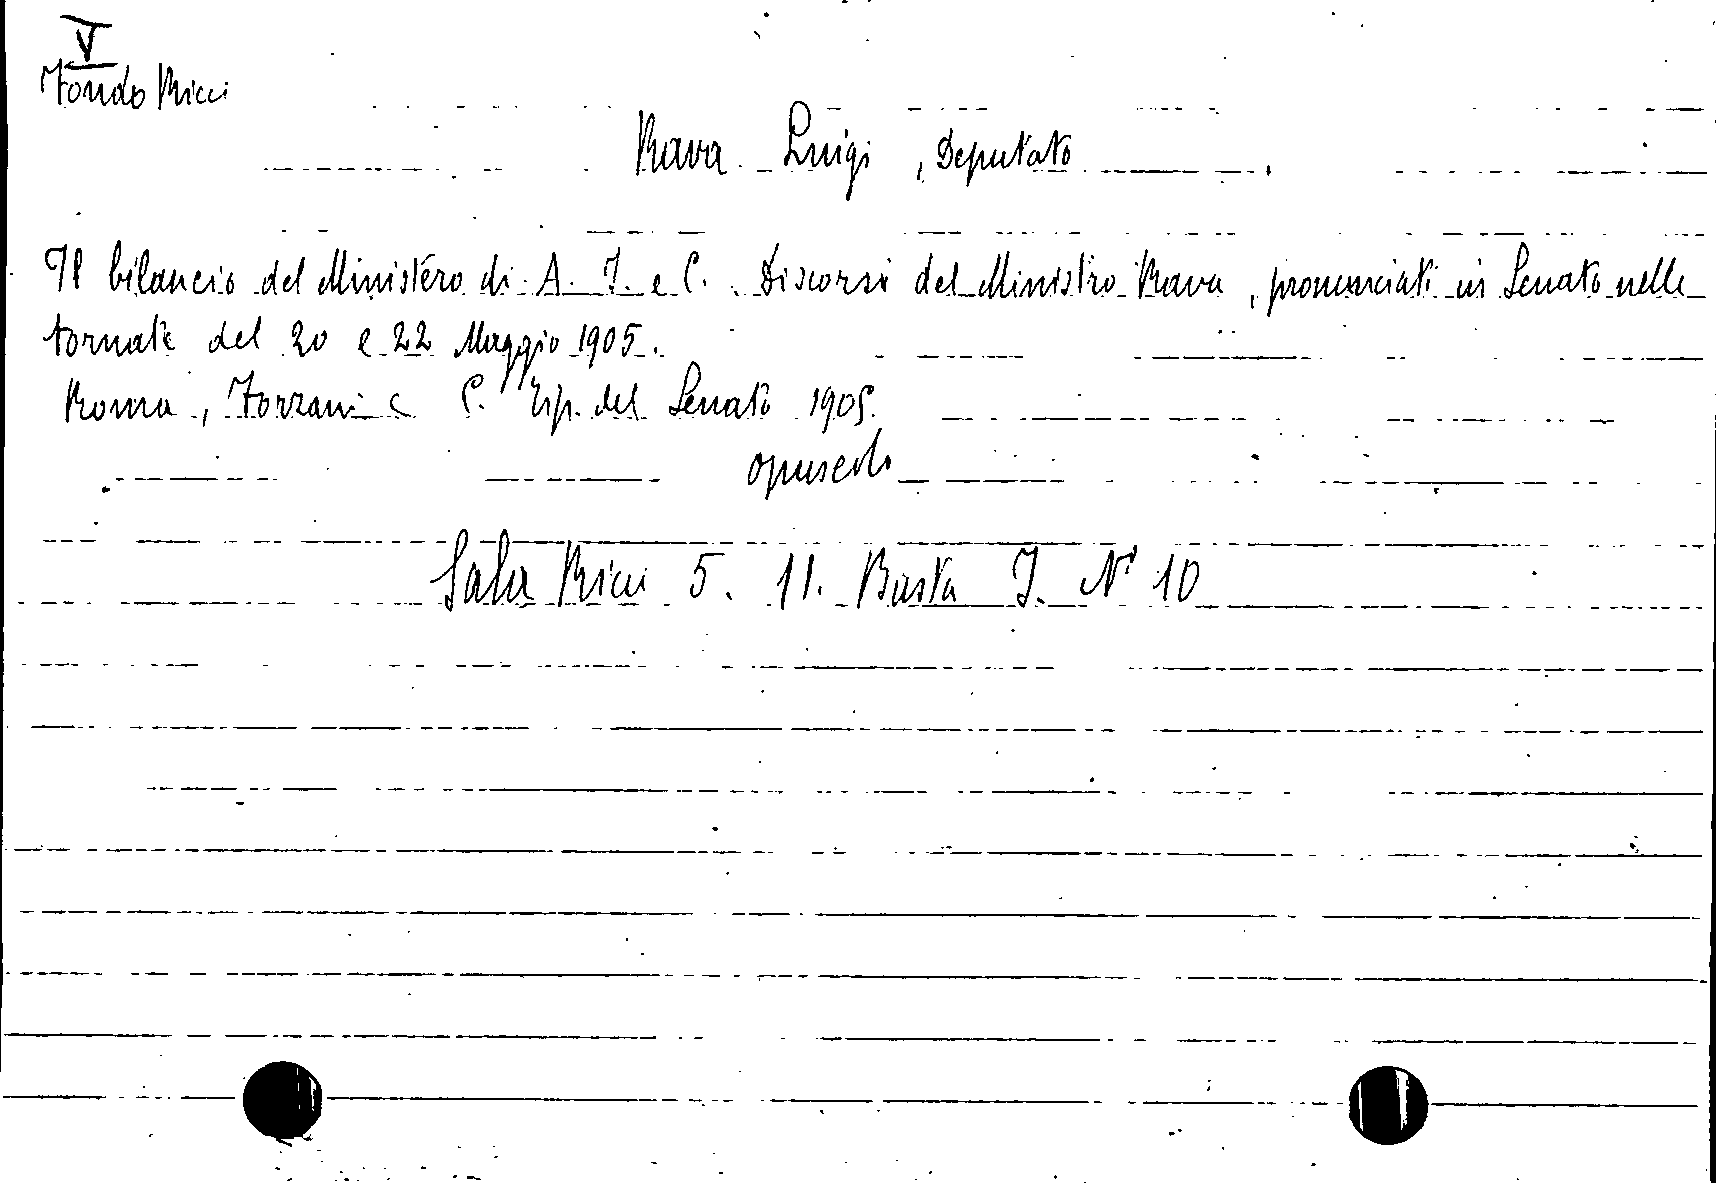 V
Fondo Ricci
Rava Luigi, Deputato
Il bilancio del Ministero di A. I. e C. Discorsi del Ministro Rava, pronunciati in Senato nelle
tornate del 20 e 22 Maggio 1905.
Roma, Forzani e C. Tip. del Senato 1905.
opuscolo
Sala Ricci 5. 11. Busta I. N° 10